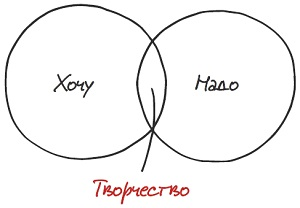 Хочу
Надо
Творчество